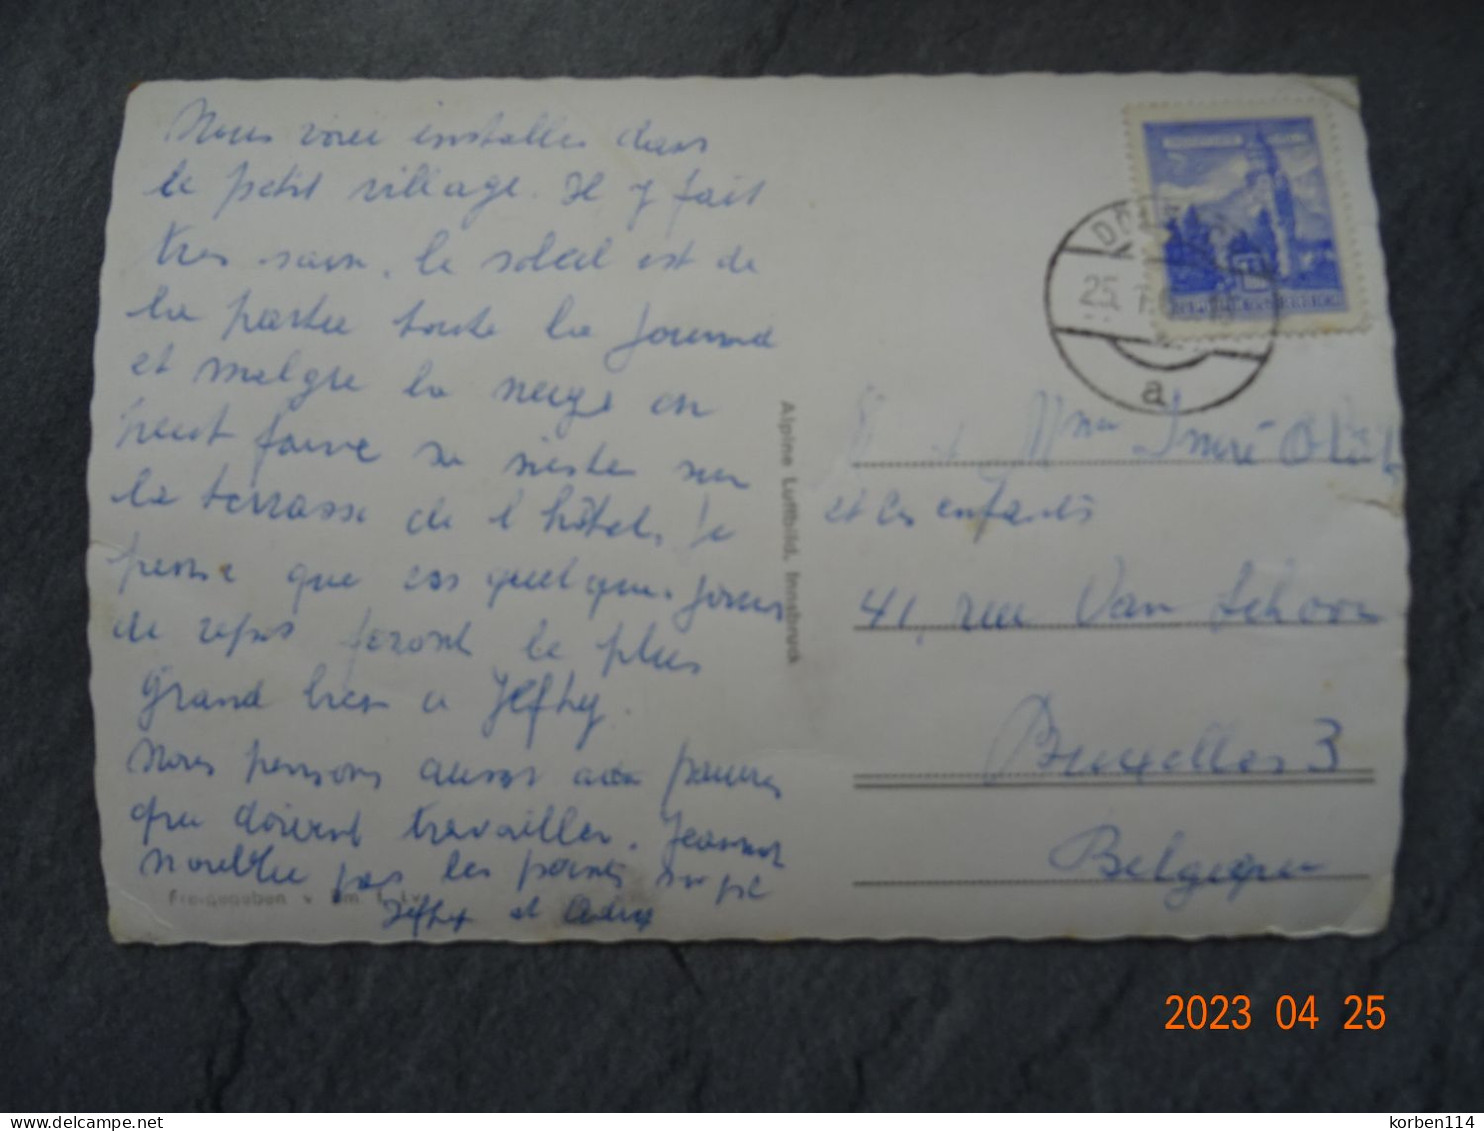 Nous voici installes dans
le petit village. Il y fait
tres sain, le soleil est de
la partie toute la journee
et malgre la neige on
peut faire sa sieste sur
la terrasse de l'hôtel. Je
pense que ces quelques jours
de repos feront le plus
grand bien a Jefhy.
Nous pensons aussi aux pauvres
qui doivent travailler. Jeannot
n'oublie pas les points
Jefhy et
Freigegeben v.
Alpine Luftbild, Innsbruck
25.
a
et Mme Imré
et les enfants
41, rue Van Schoor
Bruxelles 3
Belgique
2023 04 25
korben114